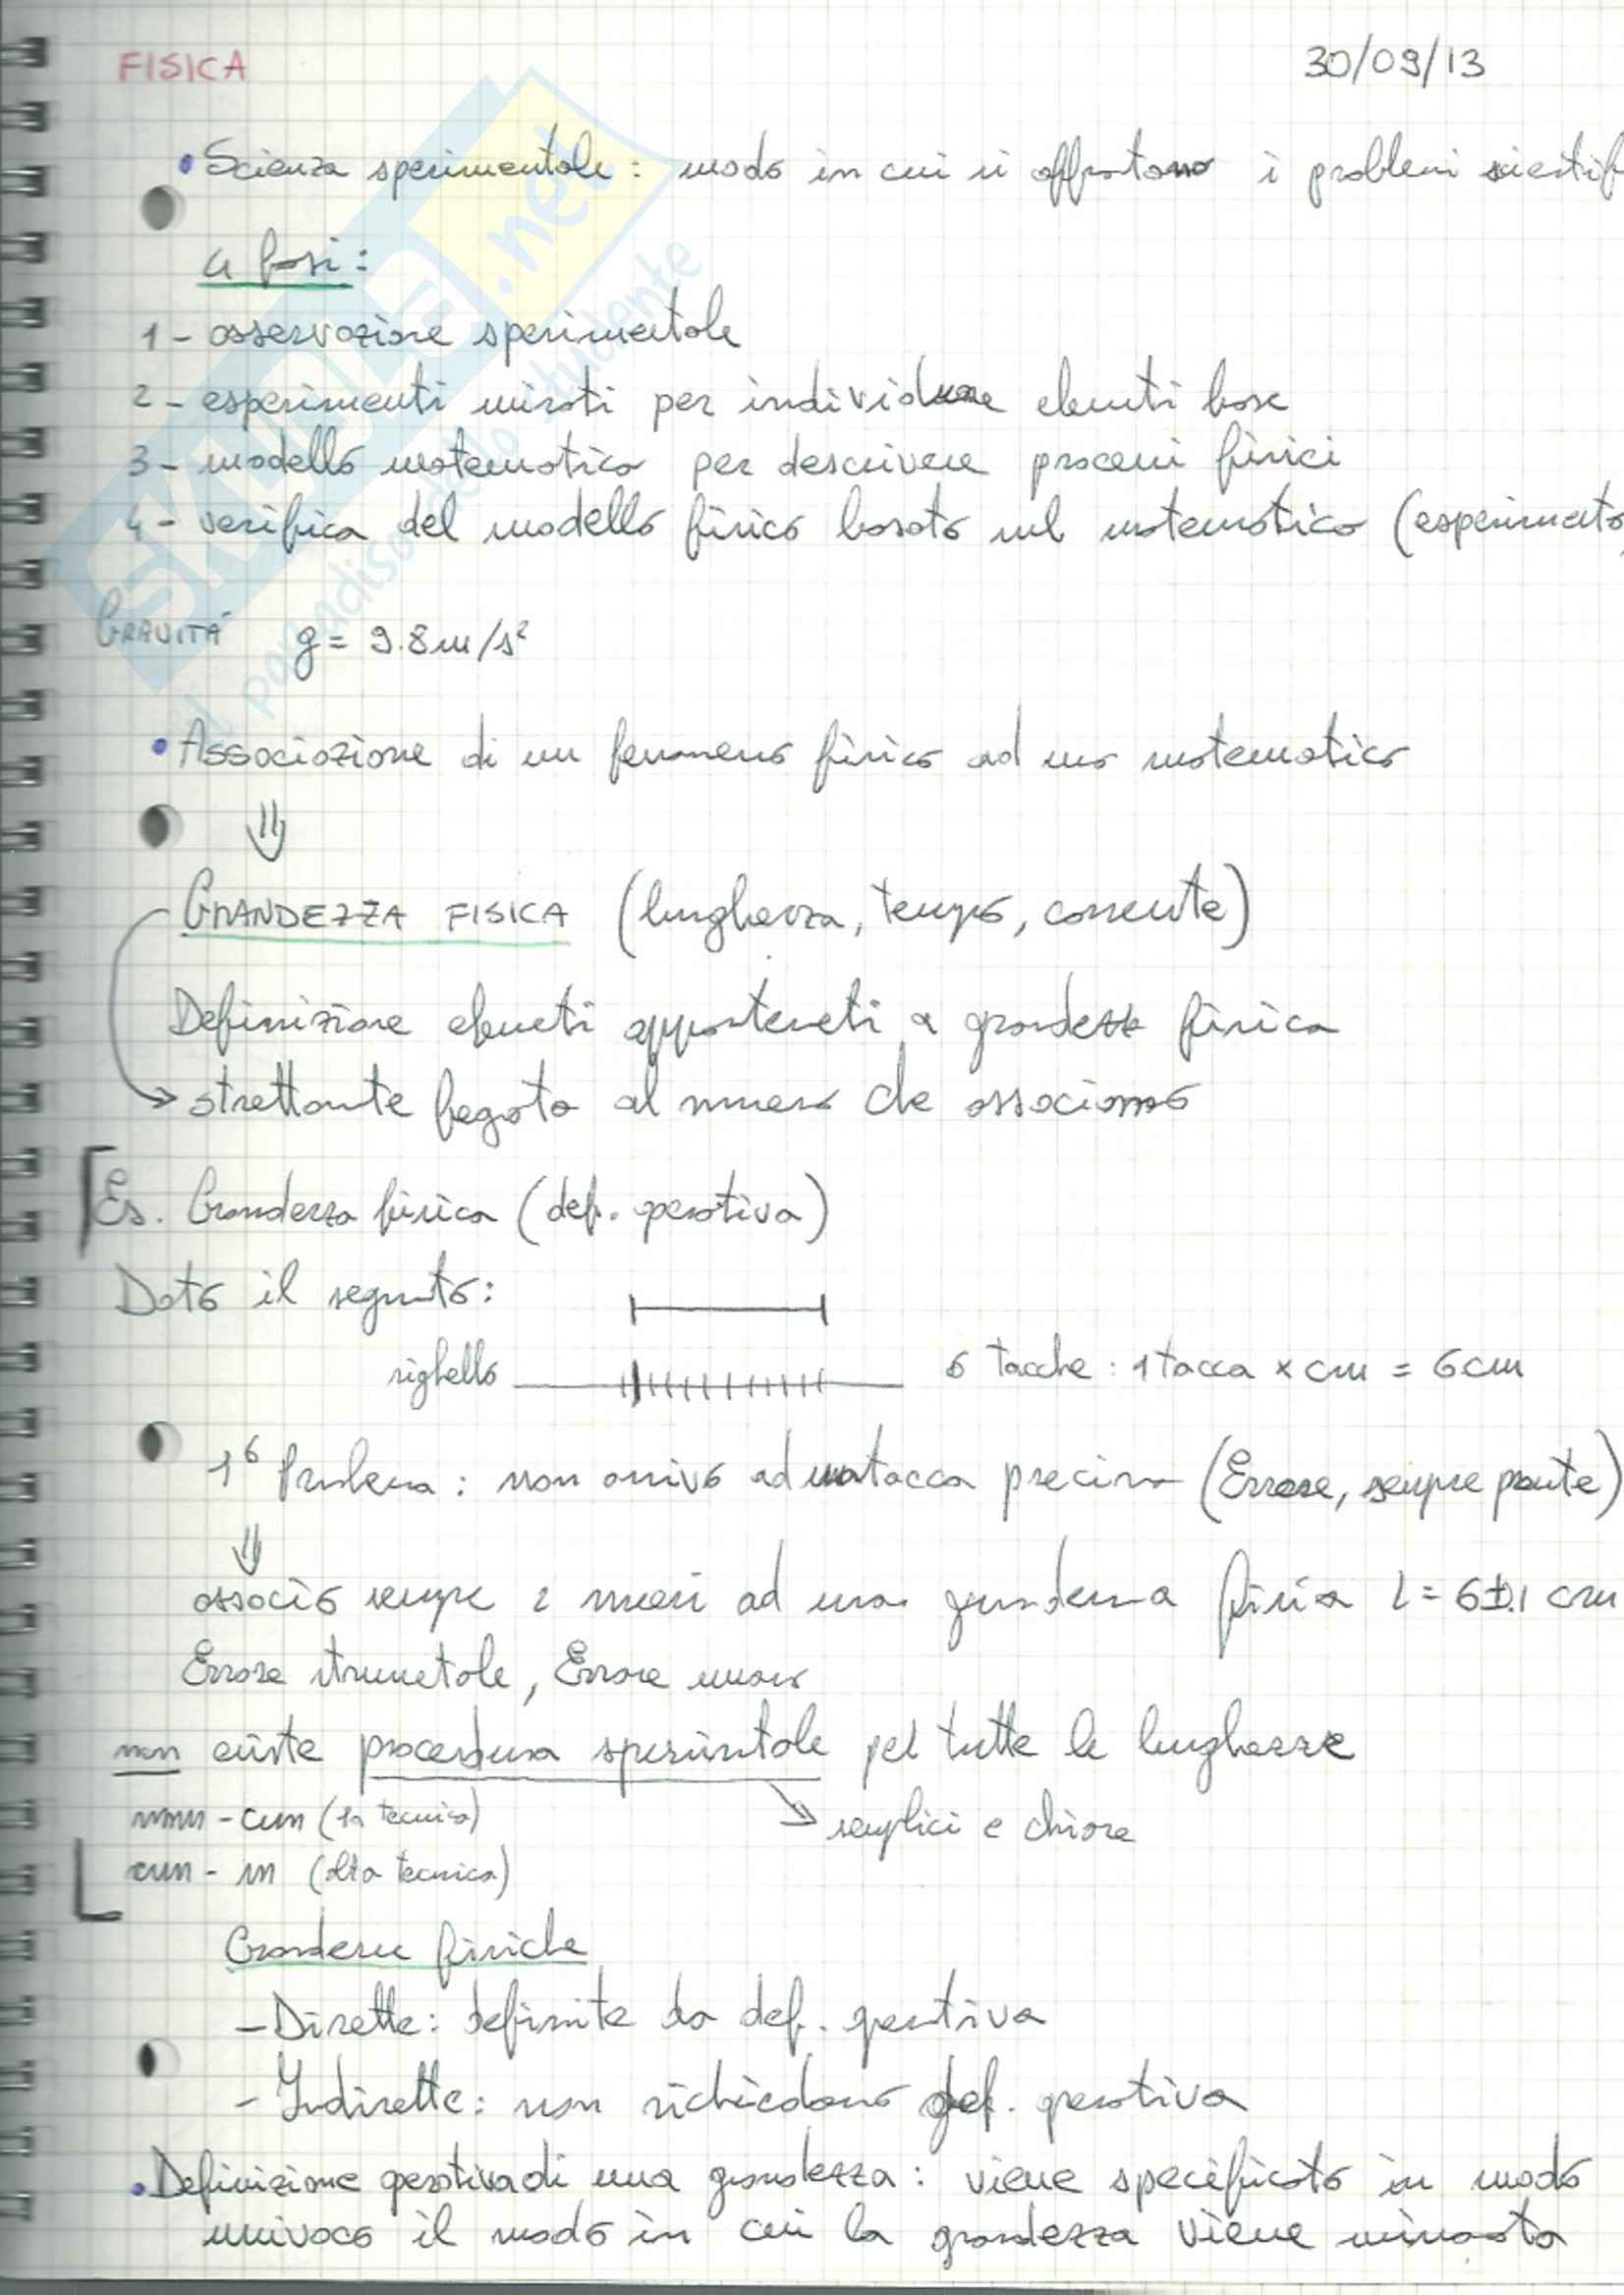 FISICA
30/09/13
• Scienza sperimentale: modo in cui si affrontano i problemi scientif
4 fasi:
1 - osservazione sperimentale
2 - esperimenti mirati per individuare elementi base
3 - modello matematico per descrivere processi fisici
4 - verifica del modello fisico basato sul matematico (esperimento
GRAVITÀ g = 9.8 m/s²
• Associazione di un fenomeno fisico ad uno matematico
⇓
GRANDEZZA FISICA (lunghezza, tempo, corrente)
Definizione elementi appartenenti a grandezza fisica
→ strettamente legata al numero che associamo
Es. Grandezza fisica (def. operativa)
Dato il segmento:
righello
6 tacche: 1 tacca x cm = 6 cm
1° Problema: non arrivo ad una tacca precisa (Errore, sempre presente)
⇓
associo sempre 2 numeri ad una grandezza fisica l = 6±.1 cm
Errore strumentale, Errore umano
non esiste procedura sperimentale per tutte le lunghezze
mm - cm (1a tecnica)
→ semplici e chiare
cm - m (altra tecnica)
Grandezze fisiche
- Dirette: definite da def. operativa
- Indirette: non richiedono def. operativa
• Definizione operativa di una grandezza: viene specificato in modo
univoco il modo in cui la grandezza viene misurata
SKUOLA.net
il paradiso dello studente